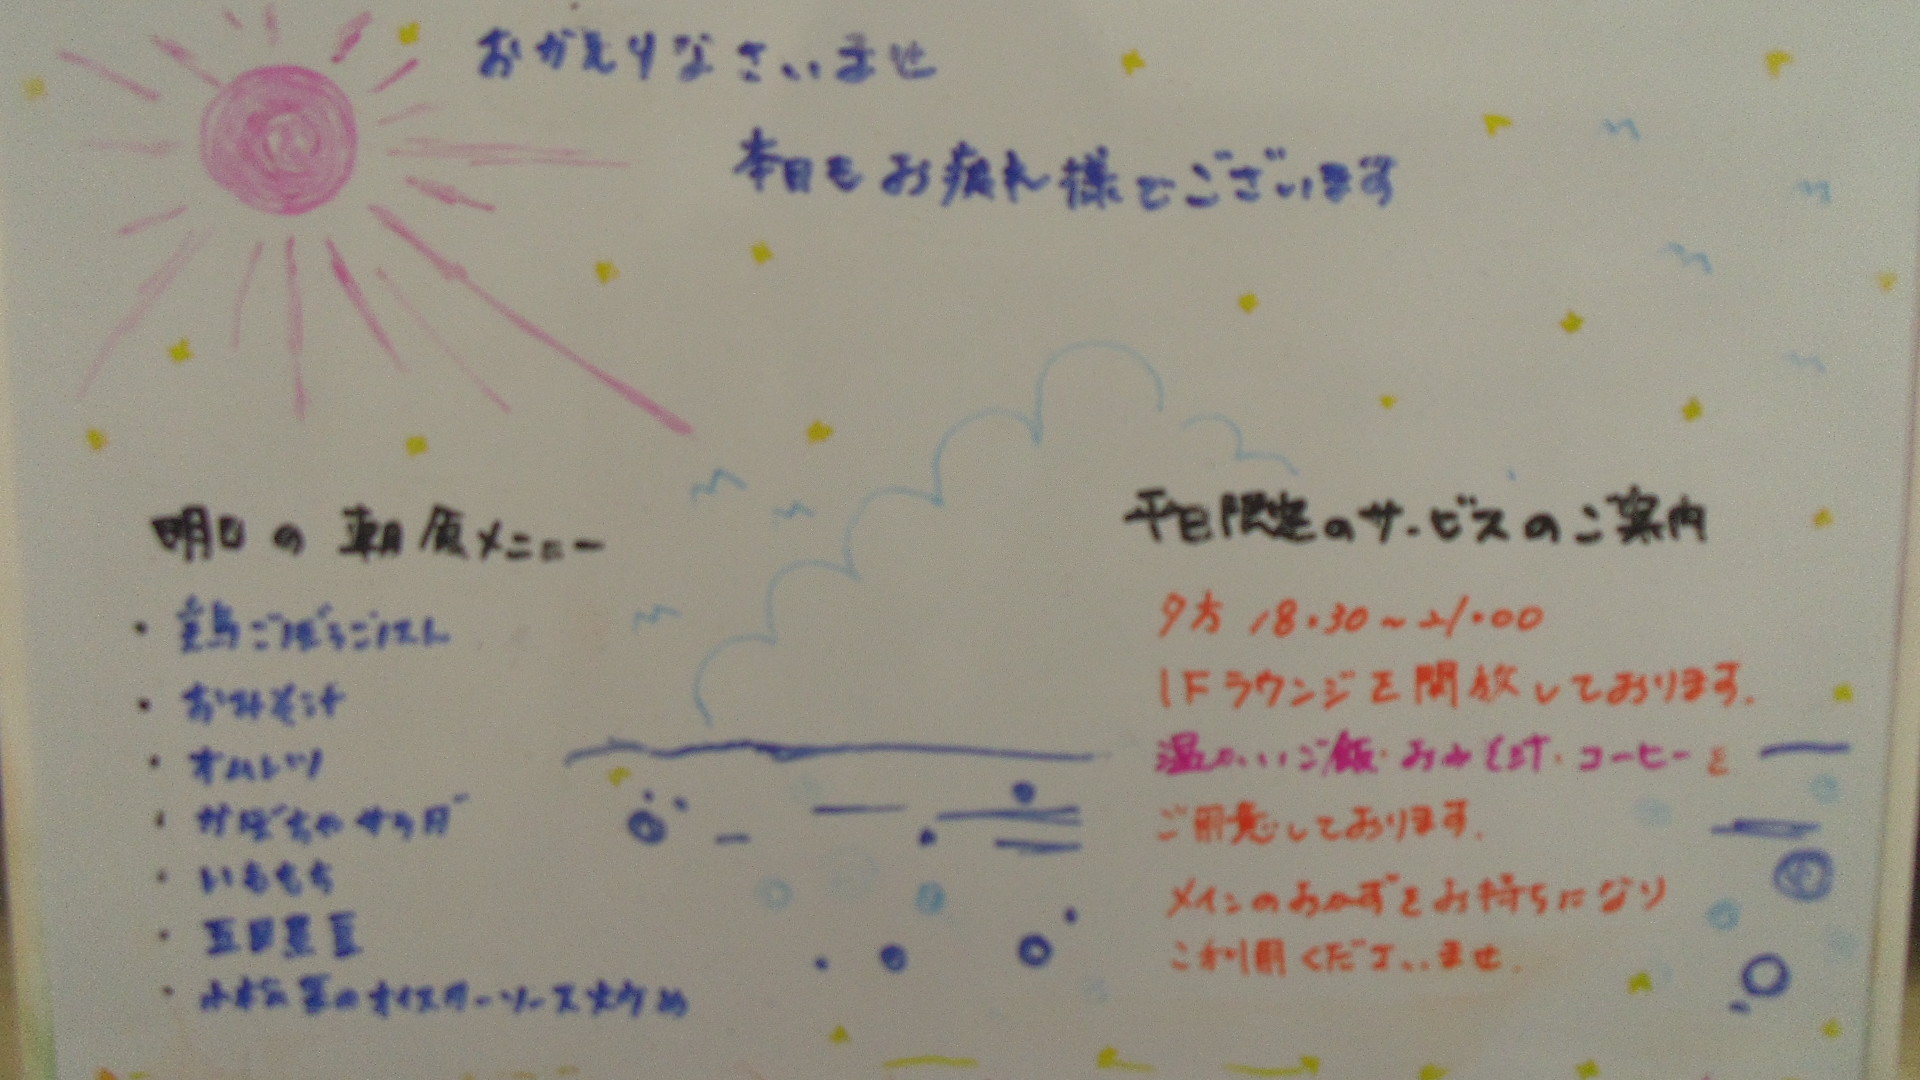 おかえりなさいませ
本日もお疲れ様でございます
明日の朝食メニュー
・鶏ごぼうごはん
・おみそ汁
・オムレツ
・かぼちゃサラダ
・いももち
・五目黒豆
・小松菜のオイスターソース炒め
平日限定のサービスのご案内
夕方 18:30～21:00
1Fラウンジを開放しております。
温かいご飯・おみそ汁・コーヒーを
ご用意しております。
メインのおかずをお持ちになり
ご利用くださいませ。